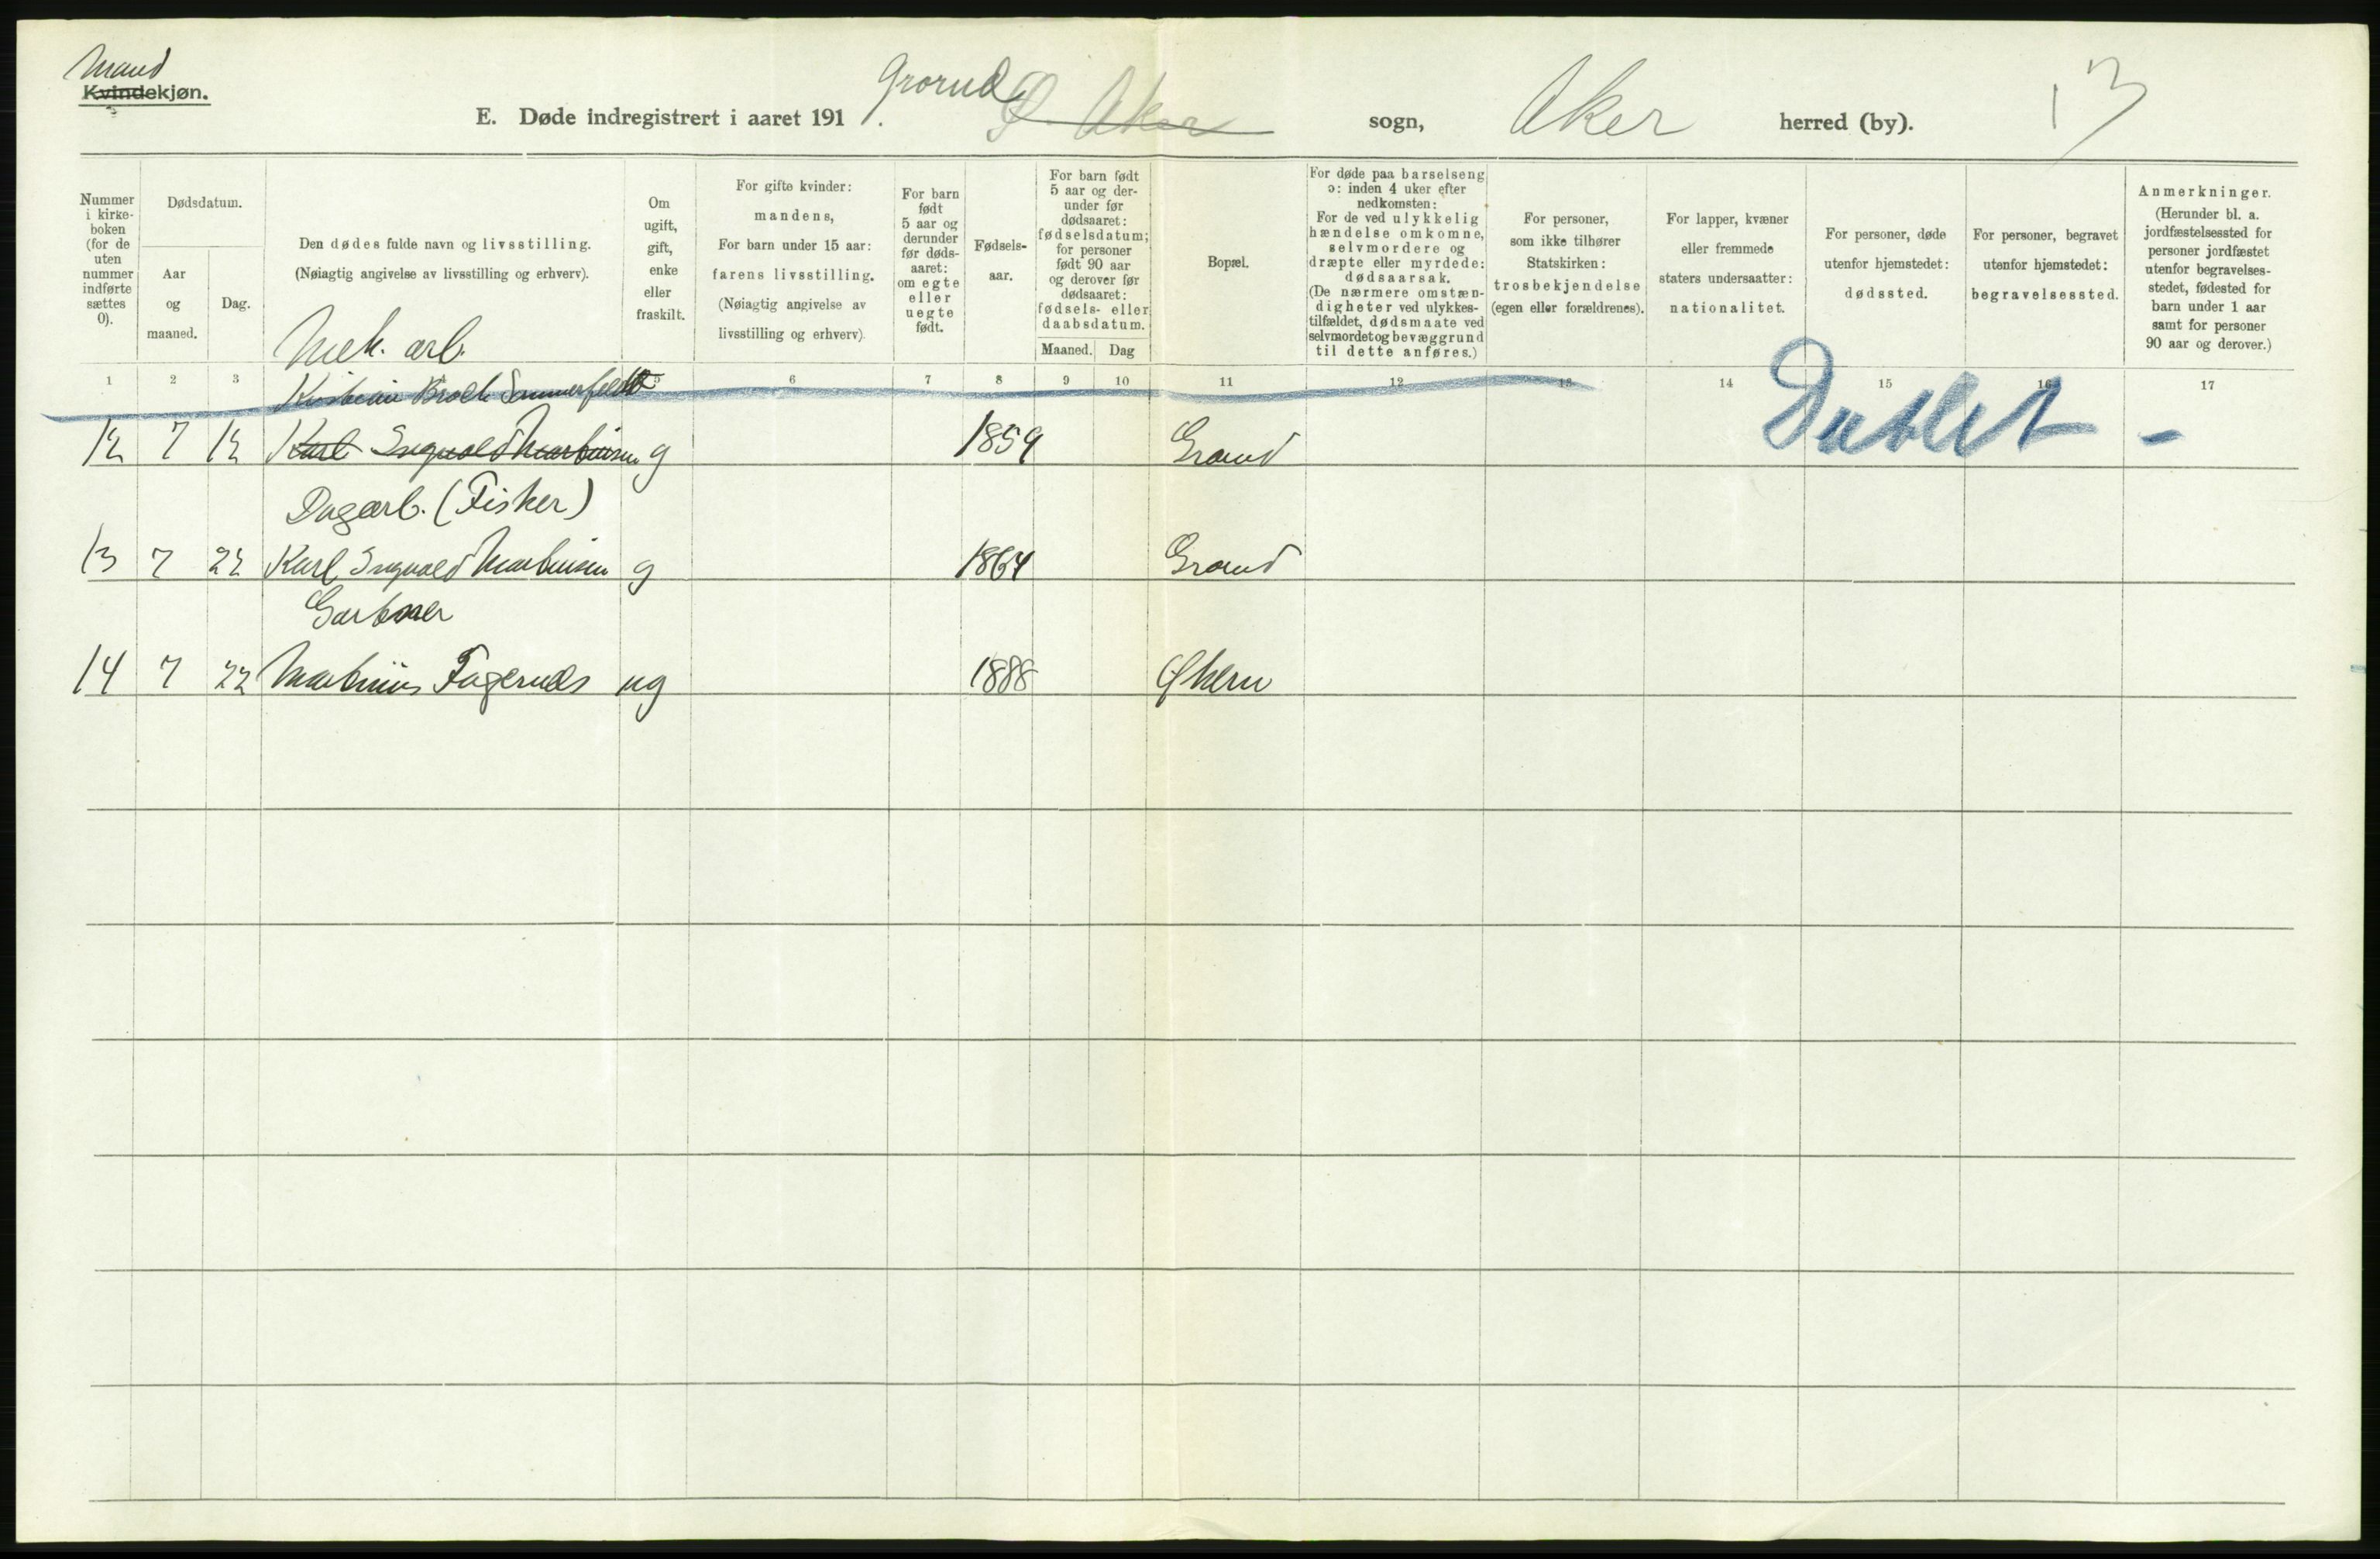 Mand
Kvindekjøn.
E. Døde indregistrert i aaret 191 . Grorud Ø. Aker sogn, Aker herred (by). 13
Nummer i kirke-boken (for de uten nummer indførte sættes 0).
Dødsdatum.
Aar og maaned.
Dag.
Den dødes fulde navn og livsstilling.
(Nøiagtig angivelse av livsstilling og erhverv).
Om ugift, gift, enke eller fraskilt.
For gifte kvinder: mandens,
For barn under 15 aar: farens livsstilling.
(Nøiagtig angivelse av livsstilling og erhverv).
For barn født 5 aar og derunder før døds-aaret: om egte eller uegte født.
Fødsels-aar.
For barn født 5 aar og der-under før dødsaaret: fødselsdatum; for personer født 90 aar og derover før dødsaaret: fødsels- eller daabsdatum.
Maaned. Dag
Bopæl.
For døde paa barselseng ɔ: inden 4 uker efter nedkomsten:
For de ved ulykkelig hændelse omkomne, selvmordere og dræpte eller myrdede: dødsaarsak.
(De nærmere omstæn-digheter ved ulykkes-tilfældet, dødsmaate ved selvmordet og bevæggrund til dette anføres.)
For personer, som ikke tilhører Statskirken: trosbekjendelse (egen eller forældrenes).
For lapper, kvæner eller fremmede staters undersaatter: nationalitet.
For personer, døde utenfor hjemstedet: dødssted.
For personer, begravet utenfor hjemstedet: begravelsessted.
Anmerkninger.
(Herunder bl. a. jordfæstelsessted for personer jordfæstet utenfor begravelses-stedet, fødested for barn under 1 aar samt for personer 90 aar og derover.)
1 2 3 5 6 7 8 9 10 11 12 13 14 15 16 17
Mek. arb.
Kristian Broch Sommerfeldt
12 7 12 Karl Ingvald Martinsen g 1859 Grorud Dublet -
Dagarb. (Fisker)
13 7 22 Karl Ingvald Martinsen g 1864 Grorud
Gartner
14 7 22 Martinius Fagernes ug 1888 Økern